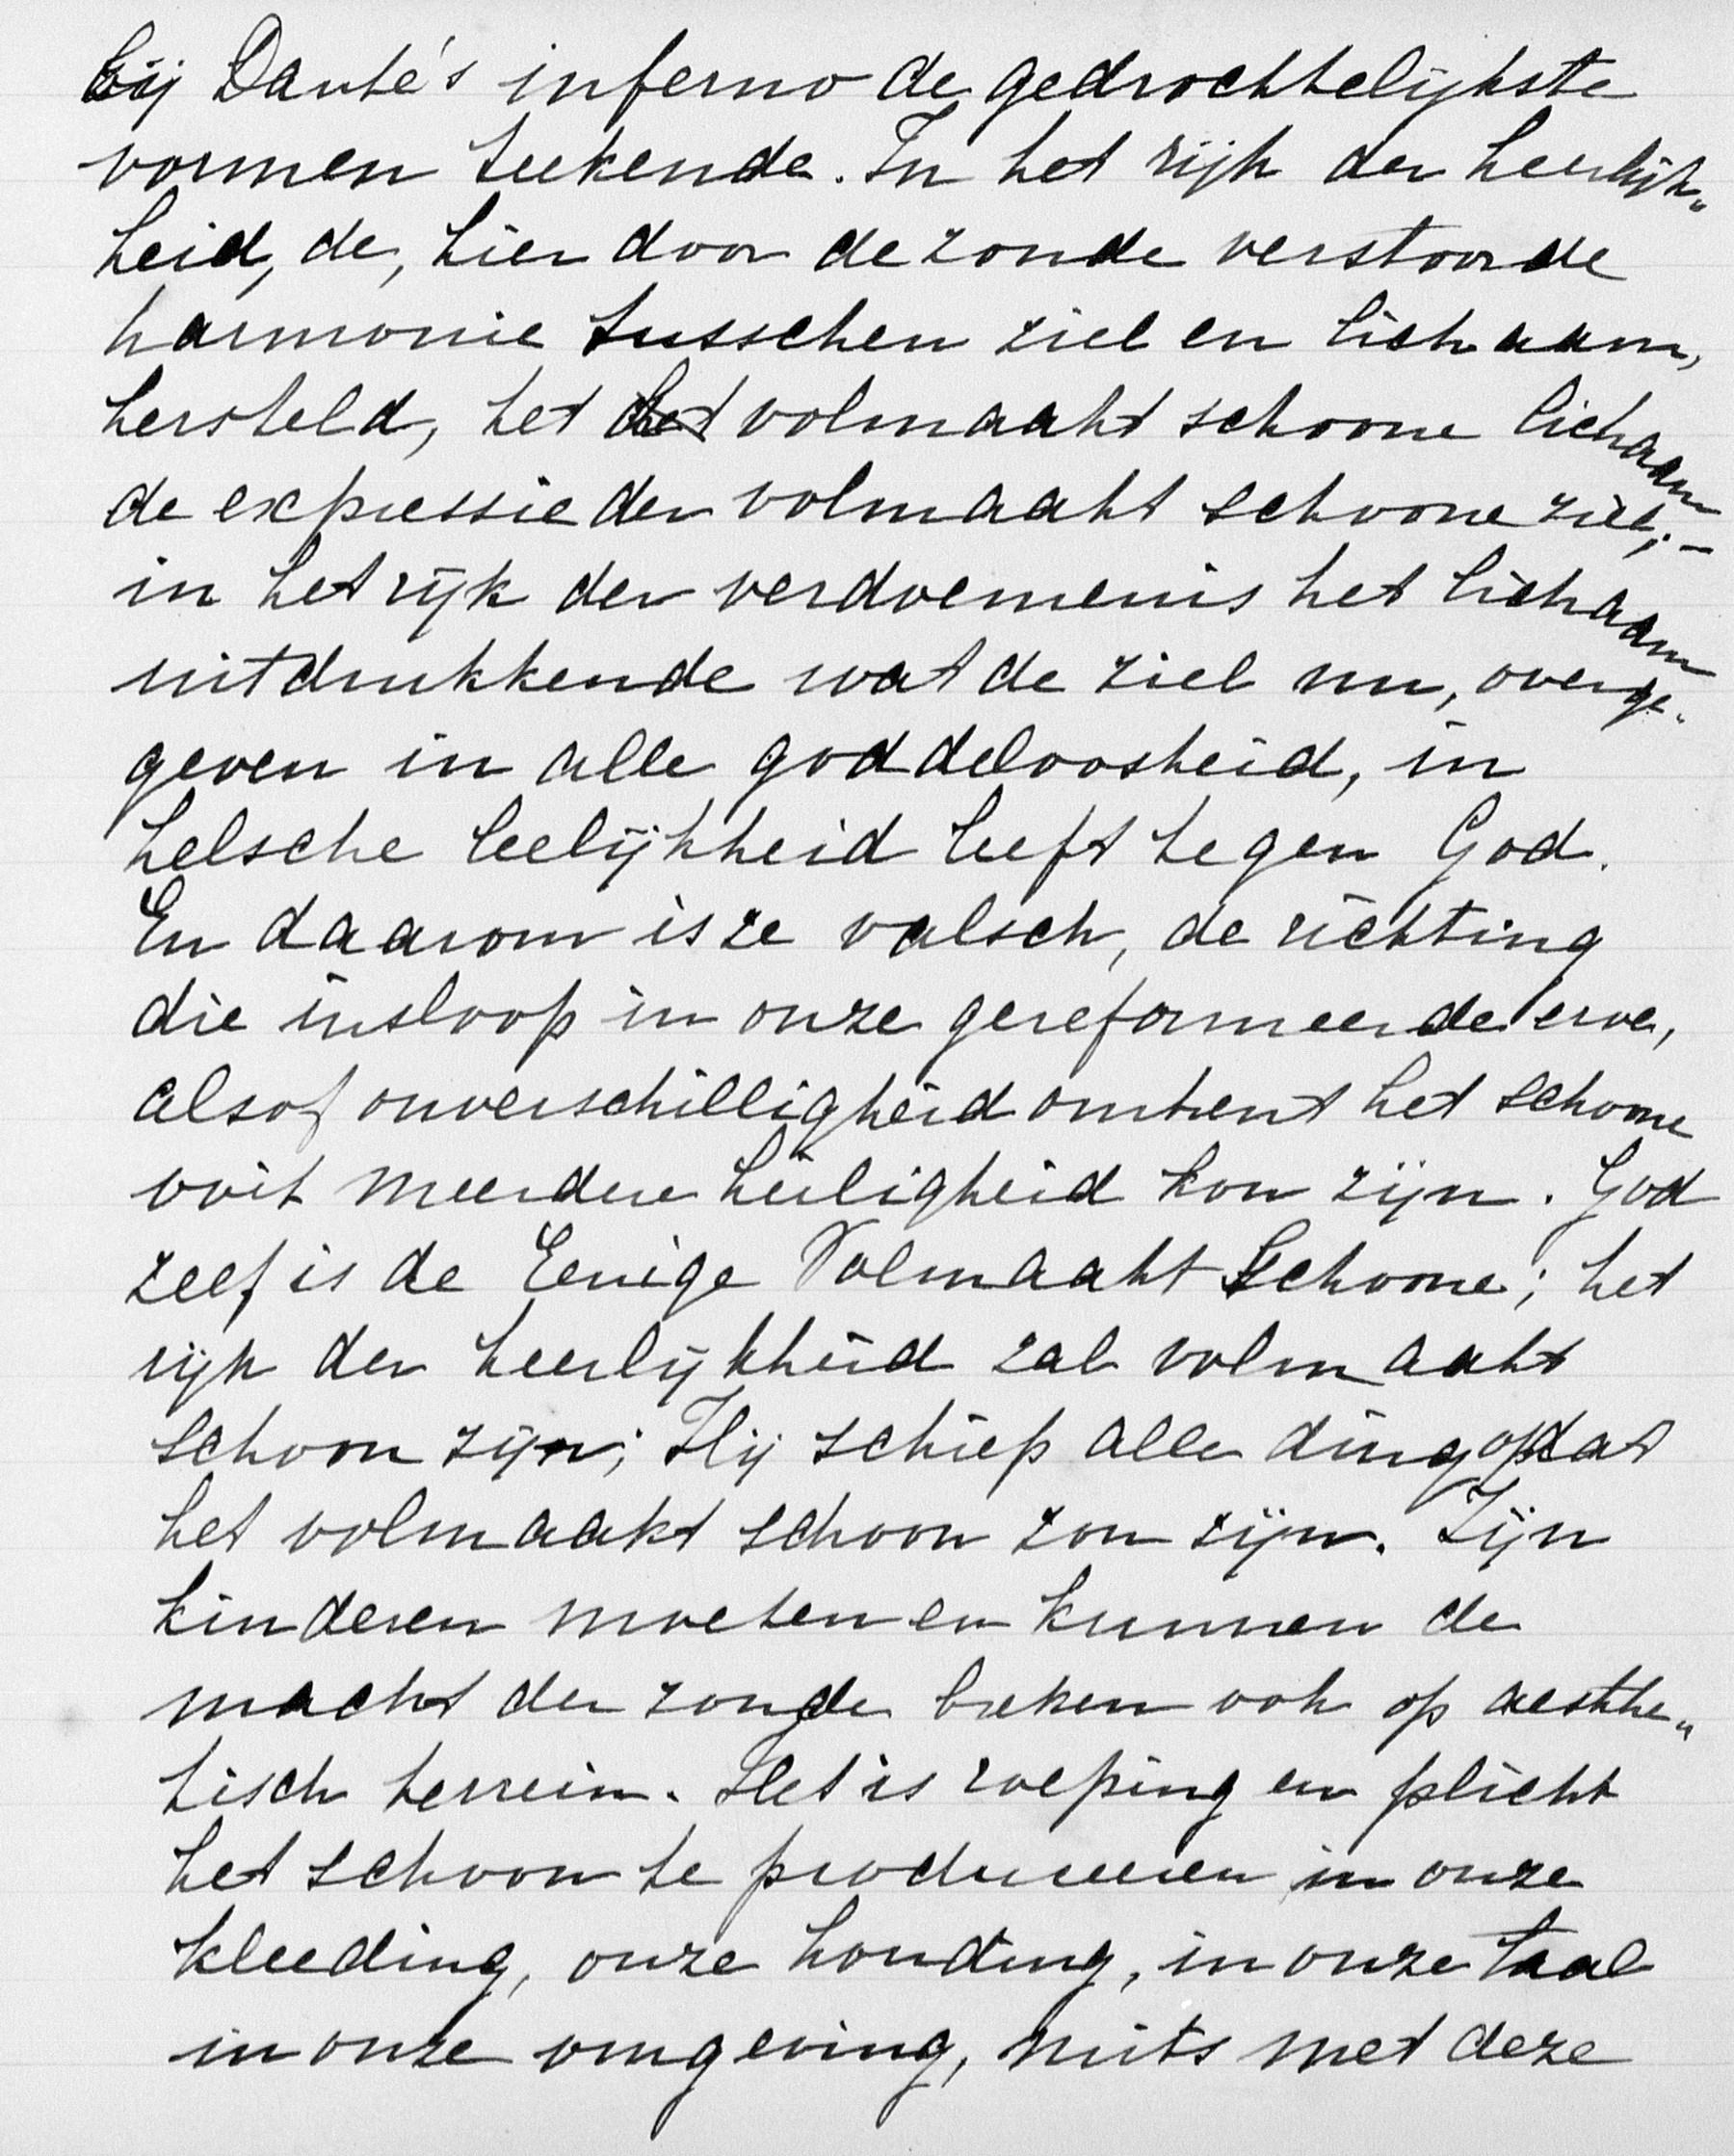 bij Dante's inferno de gedrochtelijkste
vormen teekende. In het rijk der heerlijk„
heid, de, hier door de zonde verstoorde
harmonie tusschen ziel en lichaam,
hersteld, het volmaakt schoone lichaam
de expressie der volmaakt schoone ziel; –
in het rijk der verdoemenis het lichaam
uitdrukkende wat de ziel nu, overge„
geven in alle goddeloosheid, in
helsche leelijkheid leeft tegen God.
En daarom is ze valsch, de richting
die insloop in onze gereformeerde erve,
alsof onverschilligheid omtrent het schoone
ooit meerdere heiligheid kon zijn. God
zelf is de Eenige Volmaakt Schoone; het
rijk der heerlijkheid zal volmaakt
schoon zijn; Hij schiep alle ding opdat
het volmaakt schoon zou zijn. Zijn
kinderen moeten en kunnen de
macht der zonde breken ook op aesthe„
tisch terrein. Het is roeping en plicht
het schoon te produceeren in onze
kleeding, onze houding, in onze taal
in onze omgeving, mits met deze